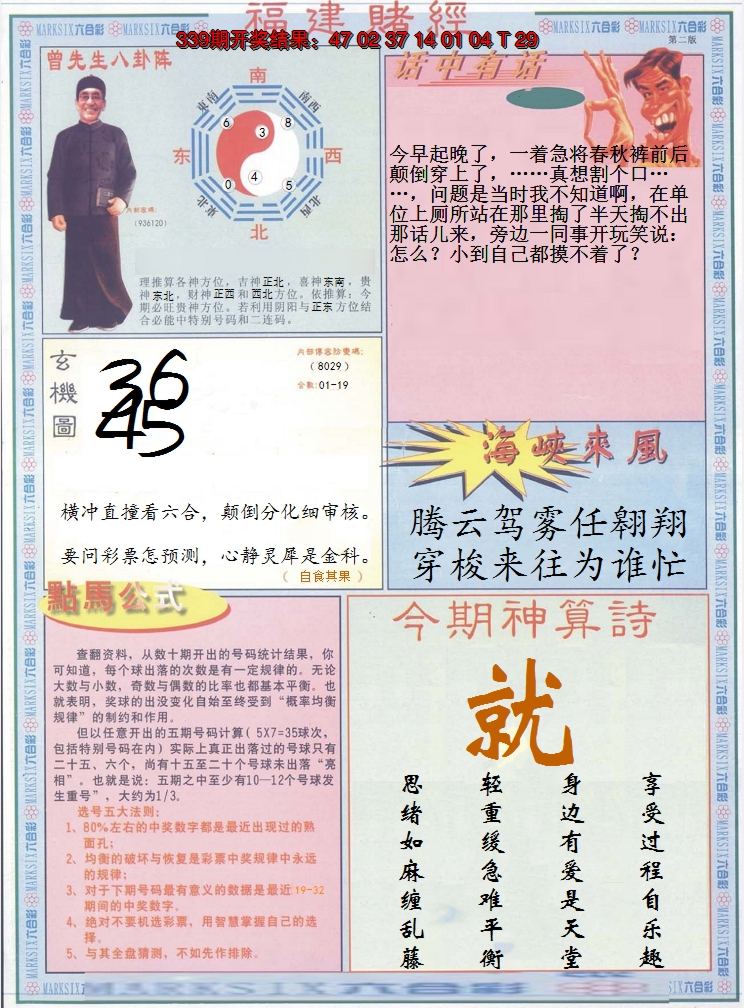 福建賭經
339期开奖结果：47 02 37 14 01 04 T 29
MARKSIX六合彩
第二版
曾先生八卦阵
南
东南
西南
6
3
8
东
西
0
4
5
东北
西北
北
内部密碼:
(936120)
理推算各神方位，吉神正北，喜神东南，贵
神东北，财神正西和西北方位。依推算：今
期必旺贵神方位。若利用阴阳与正东方位结
合必能中特别号码和二连码。
话中有话
今早起晚了，一着急将春秋裤前后
颠倒穿上了，……真想割个口…
…，问题是当时我不知道啊，在单
位上厕所站在那里掏了半天掏不出
那话儿来，旁边一同事开玩笑说：
怎么？小到自己都摸不着了？
玄機圖
36
45
(8029)
合数:01-19
横冲直撞看六合，颠倒分化细审核。
要问彩票怎预测，心静灵犀是金科。
（ 自食其果 ）
海峽來風
腾云驾雾任翱翔
穿梭来往为谁忙
點馬公式
查翻资料，从数十期开出的号码统计结果，你
可知道，每个球出落的次数是有一定规律的。无论
大数与小数，奇数与偶数的比率也都基本平衡。也
就表明，奖球的出没变化自始至终受到“概率均衡
规律”的制约和作用。
但以任意开出的五期号码计算( 5X7=35球次，
包括特别号码在内) 实际上真正出落过的号球只有
二十五、六个，尚有十五至二十个号球未出落“亮
相”。也就是说：五期之中至少有10—12个号球发
生重号”，大约为1/3。
选号五大法则：
1、80%左右的中奖数字都是最近出现过的熟
面孔；
2、均衡的破坏与恢复是彩票中奖规律中永远
的规律；
3、对于下期号码最有意义的数据是最近19-32
期间的中奖数字。
4、绝对不要机选彩票，用智慧掌握自己的选
择。
5、与其全盘猜测，不如先作排除。
今期神算詩
就
享受过程自乐趣
身边有爱是天堂
轻重缓急难平衡
思绪如麻缠乱藤